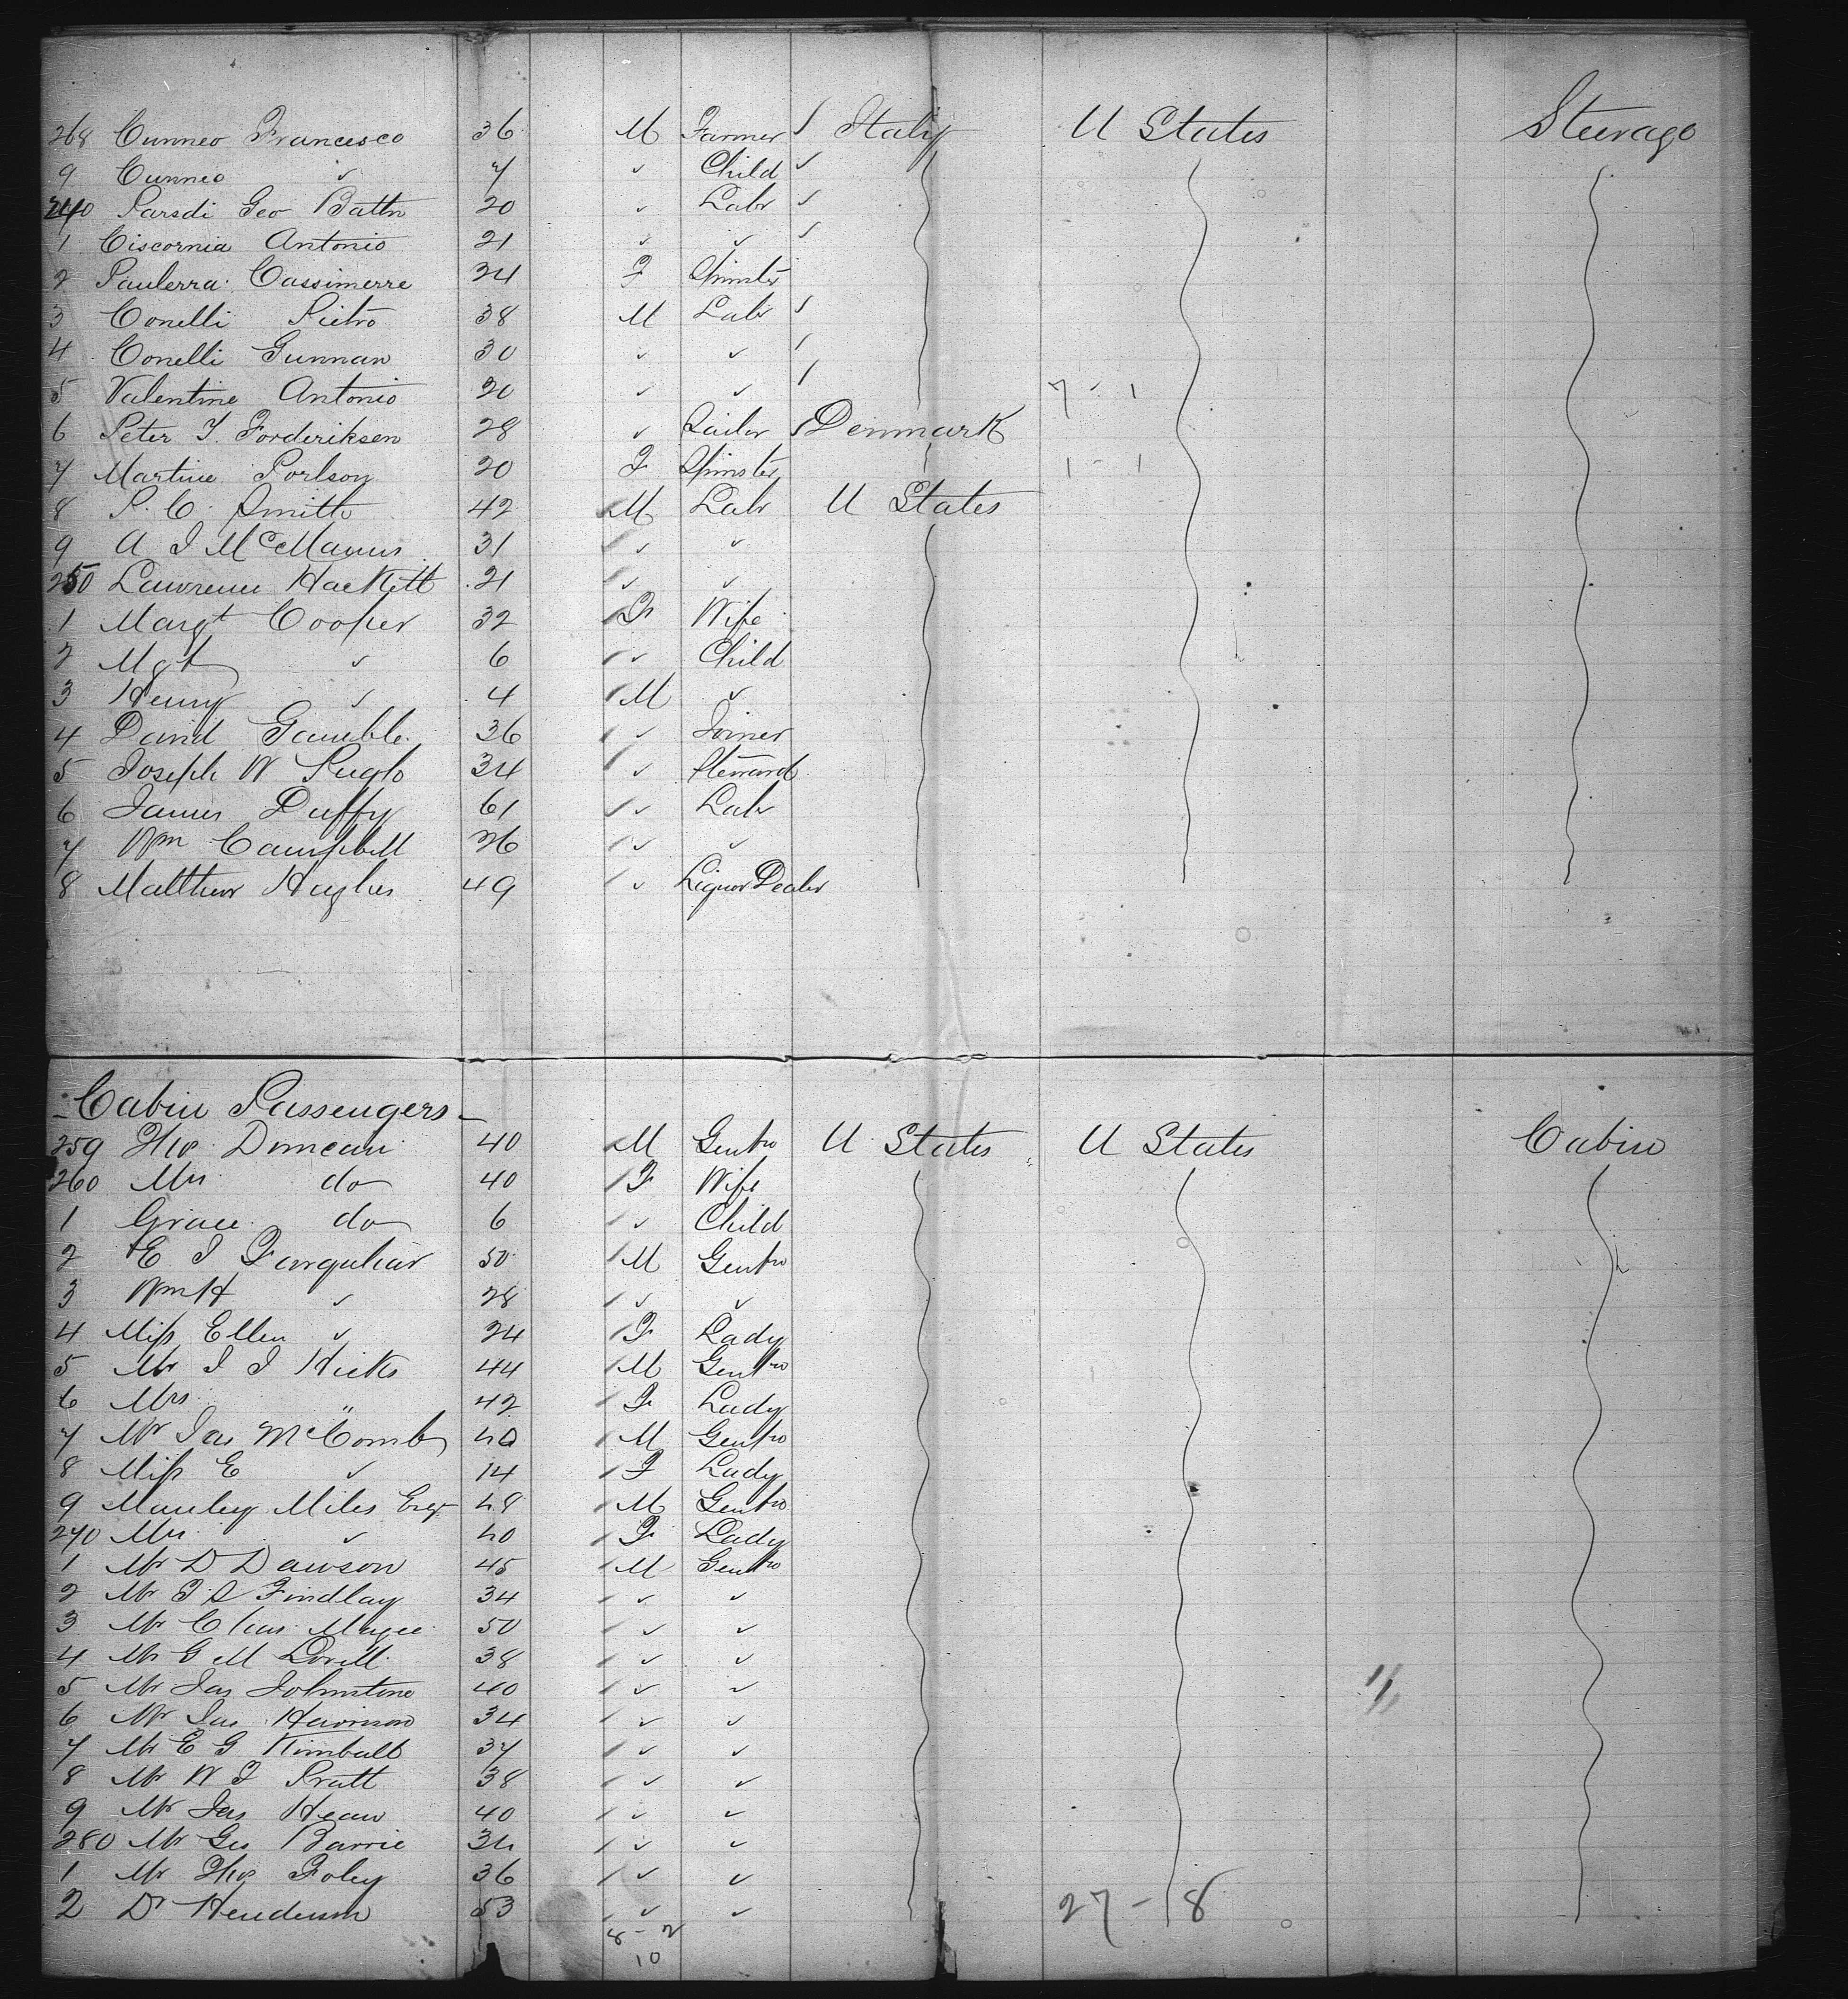 268 Cunneo Francesco 36 M Farmer / Italy U States Steerage
9 Cunneo ✓ 7 ✓ Child ✓
240 Parsdi Geo Battn 20 ✓ Labr ✓
1 Ciscornia Antonio 21 ✓ ✓ ✓
2 Paulerra Cassimerre 24 F Spinster
3 Conelli Pietro 38 M Labr /
4 Conelli Gunnan 30 ✓ ✓ /
5 Valentine Antonio 20 ✓ ✓ / 7 - 1
6 Peter J. Forderiksen 28 ✓ Sailor / Denmark
7 Martine Porlson 20 F Spinster 1 - 1
8 P. C. Smith 42 M Labr U States
9 A J McManus 31 ✓ ✓
250 Lawrence Hackett 21 ✓ ✓
1 Margt Cooper 32 F Wife
2 Mgt ✓ 6 ✓ Child
3 Henry ✓ 4 M ✓
4 David Gamble 36 ✓ Joiner
5 Joseph W Pugh 34 ✓ Steward
6 James Duffy 61 ✓ Labr
7 Wm Campbell 26 ✓ ✓
8 Matthew Hughes 49 ✓ Liquor Dealer
- Cabin Passengers -
259 Thos Duncan 40 M Gentn U States U States Cabin
260 Mrs do 40 F Wife
1 Grace do 6 ✓ Child
2 E. J Farquhar 50 M Gentn
3 Wm H ✓ 28 ✓ ✓
4 Miss Ellen ✓ 24 F Lady
5 Mr J J Hicks 44 M Gentn
6 Mrs " 42 F Lady
7 Mr Jas McComb 40 M Gentn
8 Miss E ✓ 14 F Lady
9 Manley Miles Esqr 48 M Gentn
270 Mrs ✓ 40 F Lady
1 Mr D Dawson 45 M Gentn
2 Mr T S Findlay 34 ✓ ✓
3 Mr Chas Magee 50 ✓ ✓
4 Mr G M Lovell 38 ✓ ✓
5 Mr Jas Johnstone 40 ✓ ✓
6 Mr Jas Harrison 34 ✓ ✓
7 Mr E G Kimball 37 ✓ ✓
8 Mr W F Pratt 38 ✓ ✓
9 Mr Jas Hean 40 ✓ ✓
280 Mr Geo Barrie 34 ✓ ✓
1 Mr Thos Foley 36 ✓ ✓
2 Dr Henderson 53 ✓ ✓ 27 - 8
8 - 2
10